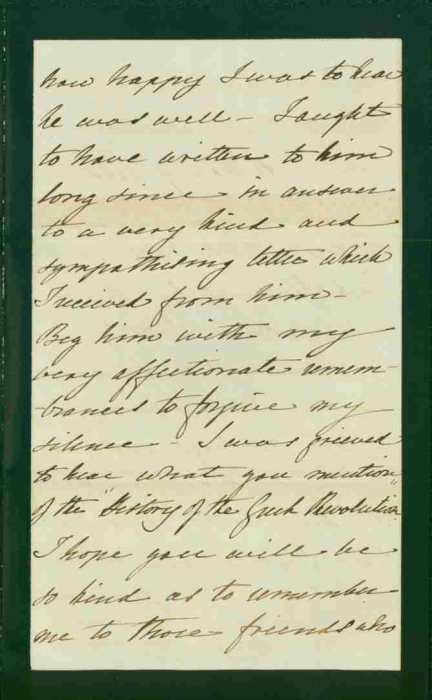 how happy I was to hear
he was well - I ought
to have written to him
long since in answer
to a very kind and
sympathising letter which
I received from him -
Beg him with my
very affectionate remem-
brances to forgive my
silence - I was grieved
to hear what you mention
of the "History of the Greek Revolution"
I hope you will be
so kind as to remember
me to those friends who